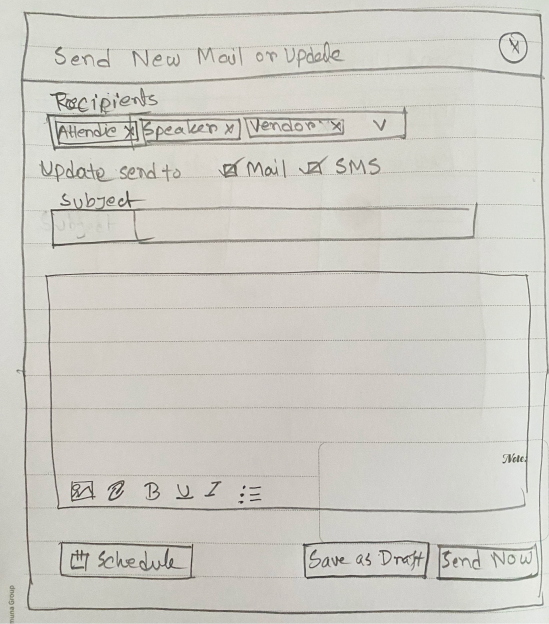 Send New Mail or Update
X
Recipients
Attendie x Speaker x Vendor x v
Update send to Mail SMS
Subject
Note:
B U I
Schedule Save as Draft Send Now
muna Group